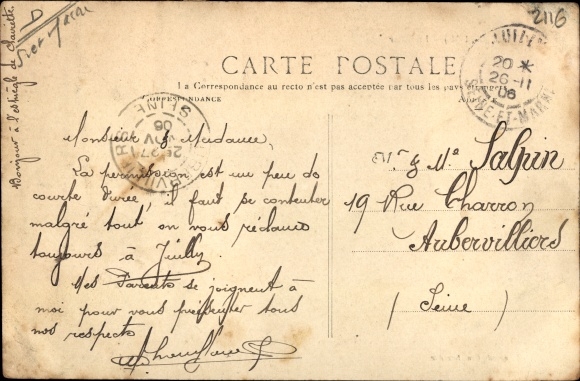 D
Seine et Marne
2116
CARTE POSTALE
La Correspondance au recto n'est pas acceptée par tous les pays étrangers
CORRESPONDANCE
JUILLY
20 *
26-11
06
SEINE-ET-MARNE
AUBERVILLIERS
SEINE
Monsieur & Madame,
La permission est un peu de
courte durée, il faut se contenter
malgré tout on vous réclame
toujours à Juilly.
Mes Parents se joignent à
moi pour vous présenter tous
nos respects
Mr & Me Salpin
19 Rue Charron
Aubervilliers
(Seine)
Bonjour à l'espiègle de